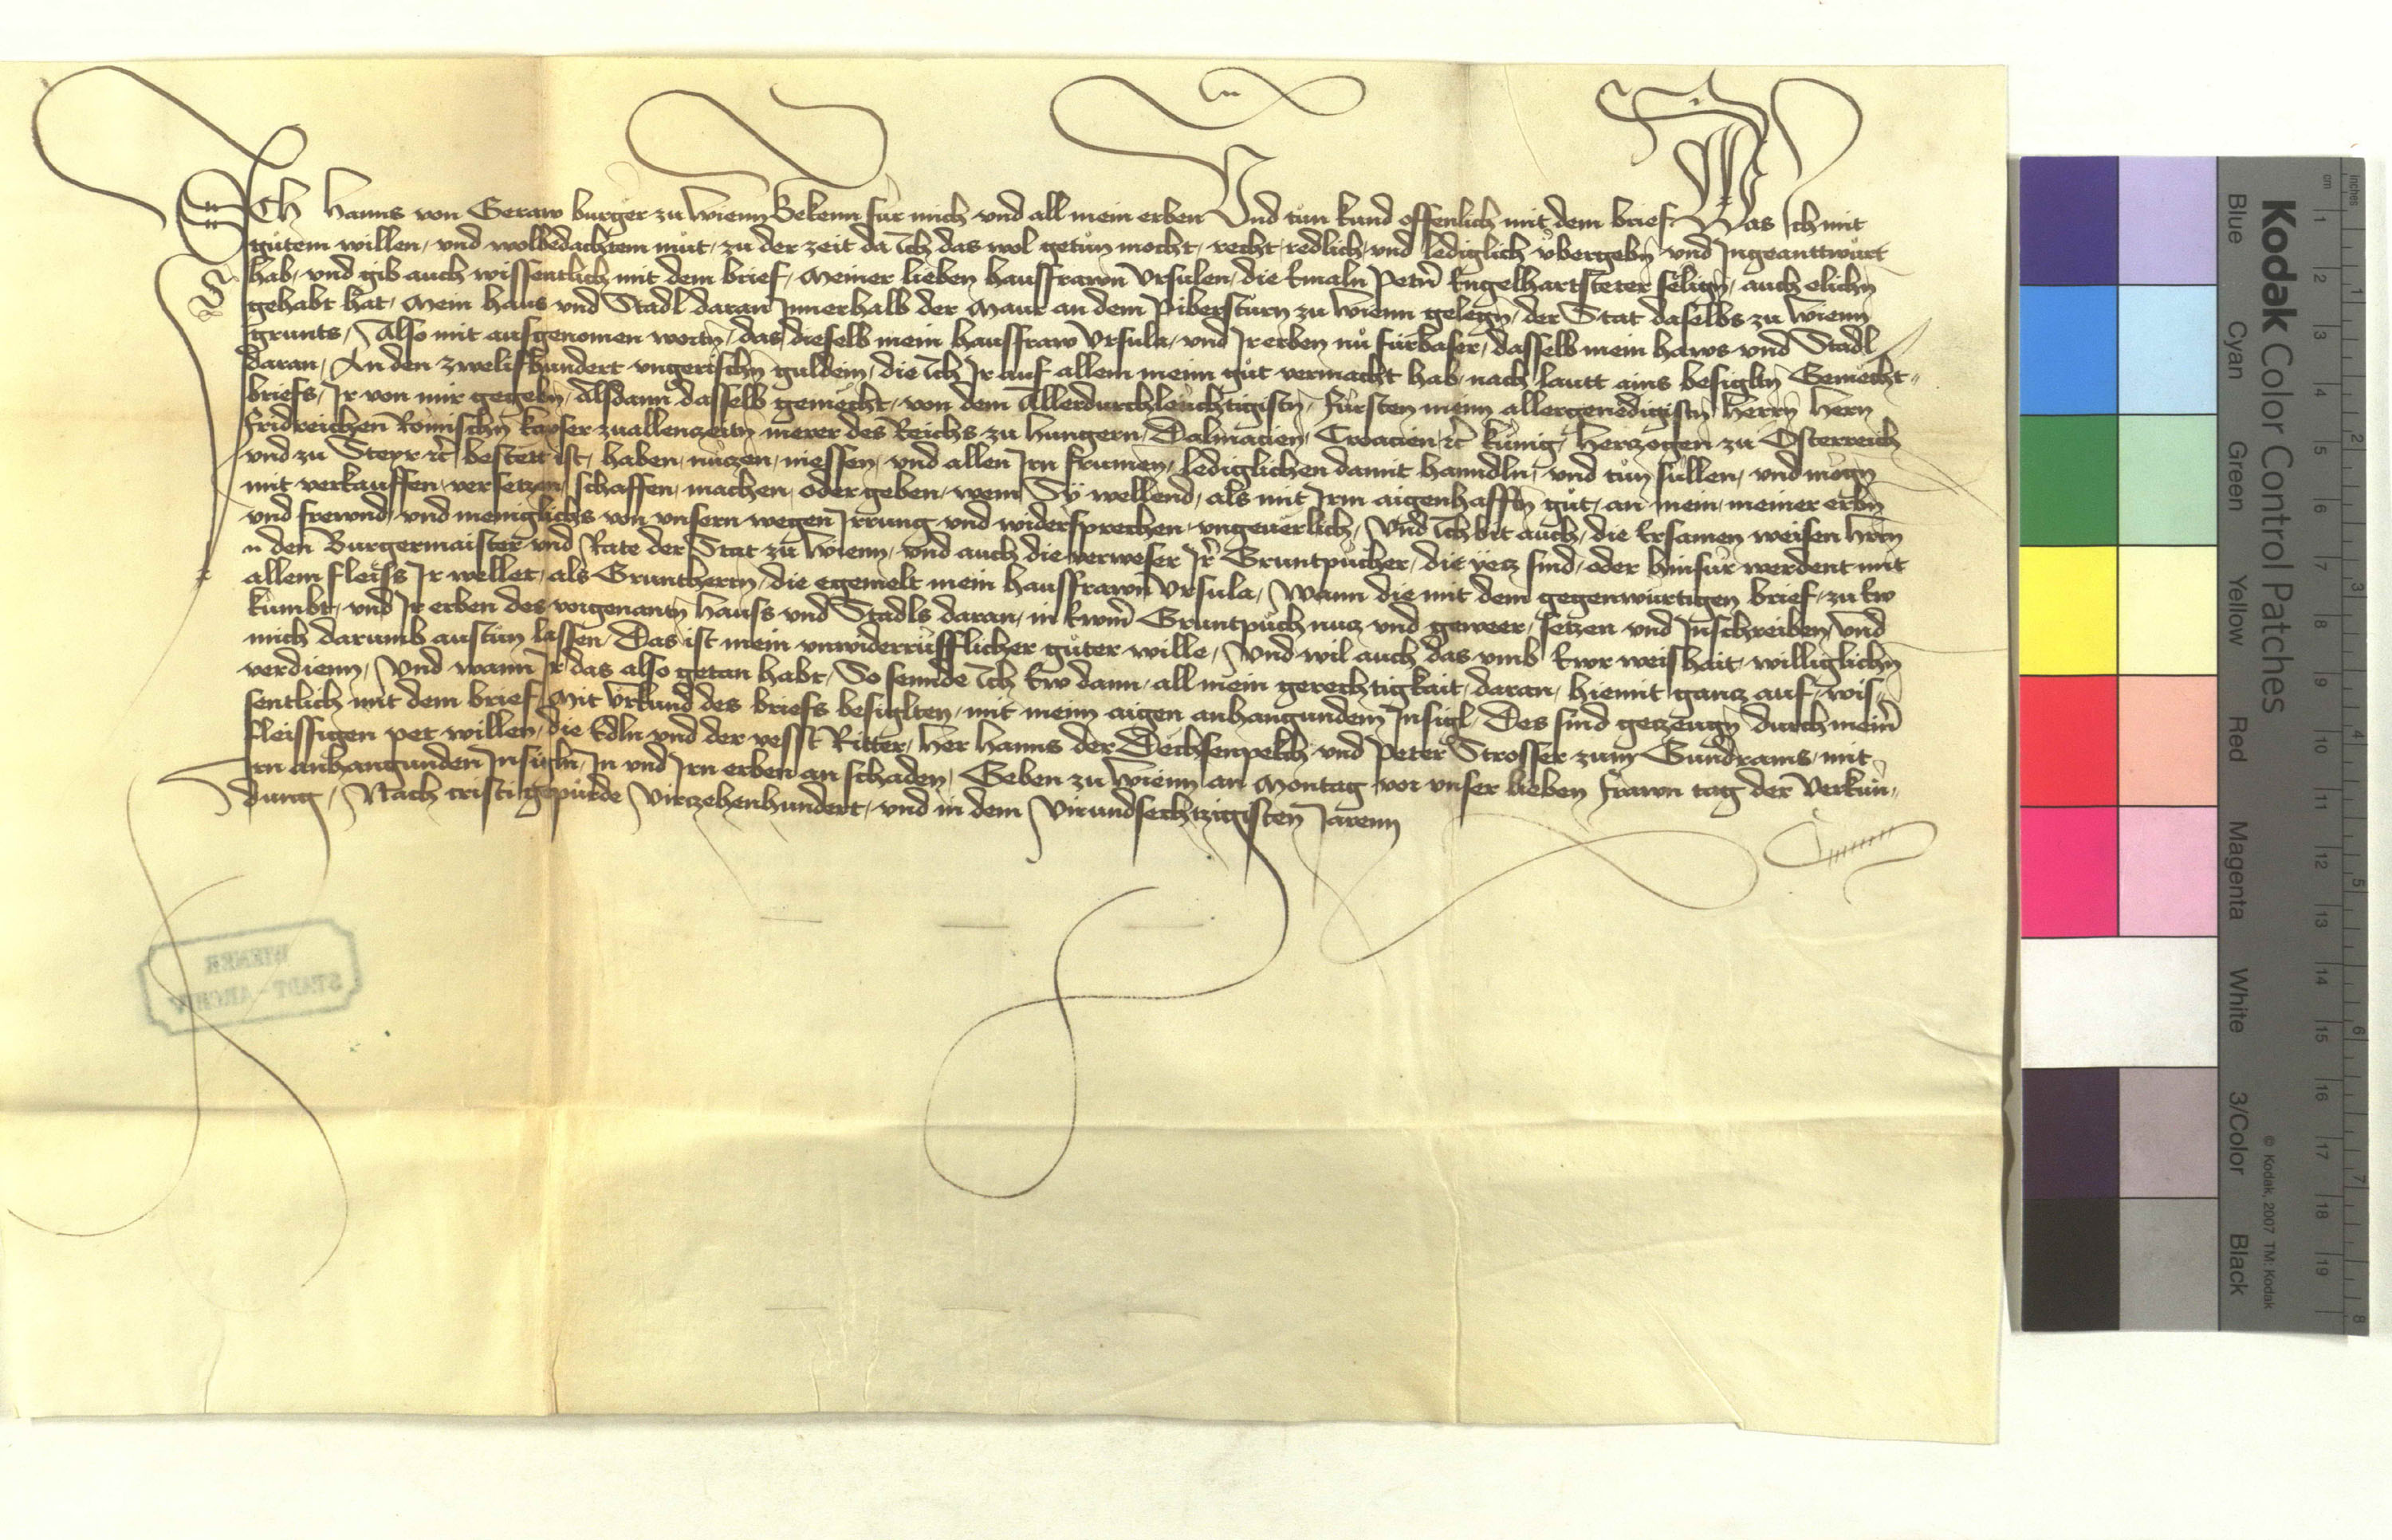 ICh Hanns von Geraw burger zu Wienn Bekenn für mich vnd all mein erben Vnd tůn kund offenlich mit dem brief Das Ich mit
gůtem willen, vnd wolbedachtem můt, zu der zeit da Ich das wol getůn mocht, recht, redlich, vnd lediglich vbergebn vnd Ingeanttwůrt
hab, vnd gib auch wissentlich mit dem brief, Meiner lieben hausfrawn Vrsulen, die Emaln Petrn Engelhartsteter seligen, auch elichn
gehabt hat, Mein haus vnd Stadl daran Innerhalb der Maur an dem Piberstůrn zu Wienn gelegn, der Stat daselbs zu Wienn
grunts, Also mit ausgenomen wortn, das dieselb mein hausfraw Vrsula, vnd Ir erben nů fürbaser, dasselb mein haws vnd Stadl
daran, An den zwelifhundert vngerischn guldein, die Ich Ir auf allem meinn gůt vermacht hab, nach lautt ains besigltn Gemecht-
briefs, Ir von mir gegebn, Alsdann dasselb gemecht, von dem Allerdurchleuchtigistn, fürsten meinn allergenedigistn Herrn Hern
fridreichen Romischn kayser zuallenzeitn merer des Reichs zu Hungern, Dalmacien, Croacien, etc kůnig, Herczogen zu Osterreich
vnd zu Steyr etc bestett ist, haben, nuczen, niessen, vnd allen Irn frumen, lediglichen damit hanndln, vnd tůn süllen, vnd mögn
mit verkauffen, versetzen, schaffen, machen, oder geben, wem Sy wellend, als mit Irm aigenhafftn gůt, an mein, meiner erbn
vnd frewnd, vnd meniglichs von vnsern wegen Irrung vnd widersprechen vngeuerlich, Vnd Ich bit auch, die Ersamen weisen hern
n den Burgermaister vnd Rate der Stat zu Wienn, vnd auch die verweser Ir Gruntpücher, die yecz sind, oder hinfür werdent mit
allem fleiss Ir wellet, als Gruntherrn, die egemelt mein hausfrawn Vrsula, Wann die mit dem gegenwürtigen brief, zu Ew
kumbt, vnd Ir erben des vorgenantn hauss vnd Stadls daran, in Ewrm Gruntpůch nucz vnd geweer, setzen vnd Inschreiben, vnd
mich darumb austůn lassen, Das ist mein vnwiderrüfflicher gůter wille, Vnd wil auch das vmb Ewr weishait williglichn
verdienn, Vnd wann Ir das also getan habt, So sennde Ich Ew dann, all mein gerechtigkait, daran, hiemit gancz auf, wis-
sentlich mit dem brief, Mit vrkund des briefs besiglten, mit meim aigen anhangundem Insigl, Des sind geczeugn durch meinr
fleissigen pet willen, die Edln vnd der vesst Ritter, Her Hanns der Dechsenpekh vnd Peter Strosser zum Gundrams, mit
Irn anhangunden Insigln, In vnd Irn erben an schaden, Geben zu Wienn an Montag vor vnser lieben frawn tag der Verkün-
dung, Nach cristi gepůrde Virczehenhundert, vnd in dem Virundsechtzigisten Jarenn
WIENER
STADT-ARCHIV
Kodak Color Control Patches
Blue Cyan Green Yellow Red Magenta White 3/Color Black
© Kodak, 2007 TM: Kodak
inches 1 2 3 4 5 6 7 8
cm 1 2 3 4 5 6 7 8 9 10 11 12 13 14 15 16 17 18 19